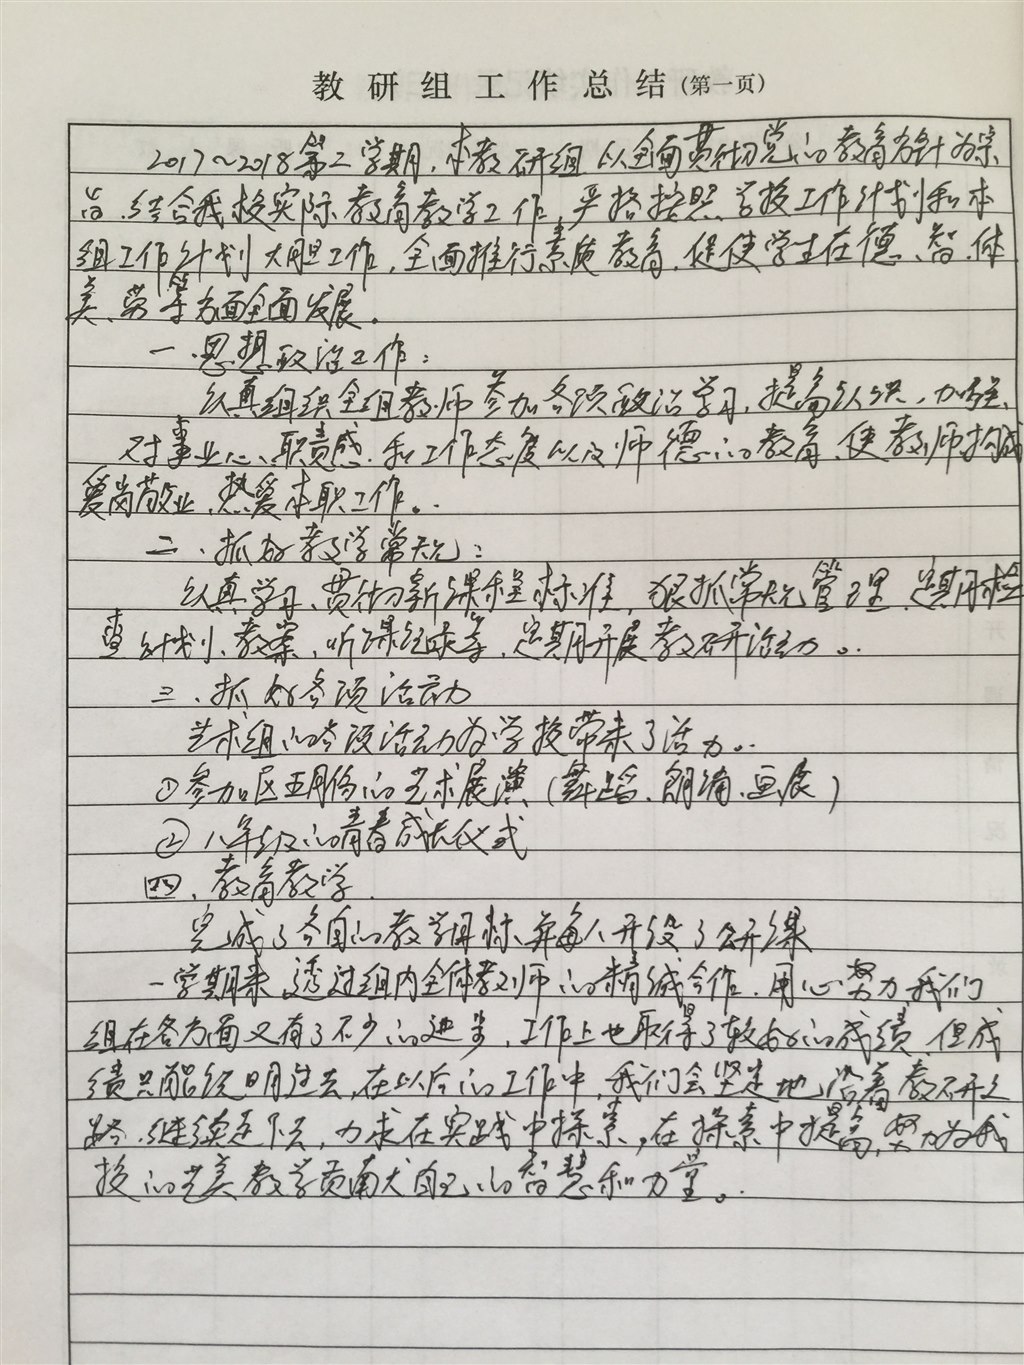 教研组工作总结(第一页)
2017~2018第二学期，本教研组以全面贯彻党的教育方针为宗
旨，结合我校实际教育教学工作，严格按照学校工作计划和本
组工作计划大胆工作，全面推行素质教育，促使学生在德、智、体
美、劳等方面全面发展。
一、思想政治工作：
认真组织全组教师参加各项政治学习，提高认识，加强
对事业心、职责感、和工作态度以及师德的教育，使教师
爱岗敬业，热爱本职工作。
二、抓好教学常规：
认真学习、贯彻新课程标准，狠抓常规管理，定期检
查计划、教案，听课记录等，定期开展教研活动。
三、抓好各项活动
艺术组的各项活动为学校带来了活力。
①参加区五月份的艺术展演(舞蹈、朗诵、画展)
②八年级的青春成长仪式
四、教育教学
完成了各自的教学目标，并每人开设了公开课
一学期来，透过组内全体教师的精诚合作，用心努力，我们
组在各方面又有了不少的进步，工作上也取得了较好的成绩，但成
绩只能说明过去，在以后的工作中，我们会坚定地沿着教研之
路，继续走下去，力求在实践中探索，在探索中提高，努力为我
校的艺美教学贡献犬自己的智慧和力量。